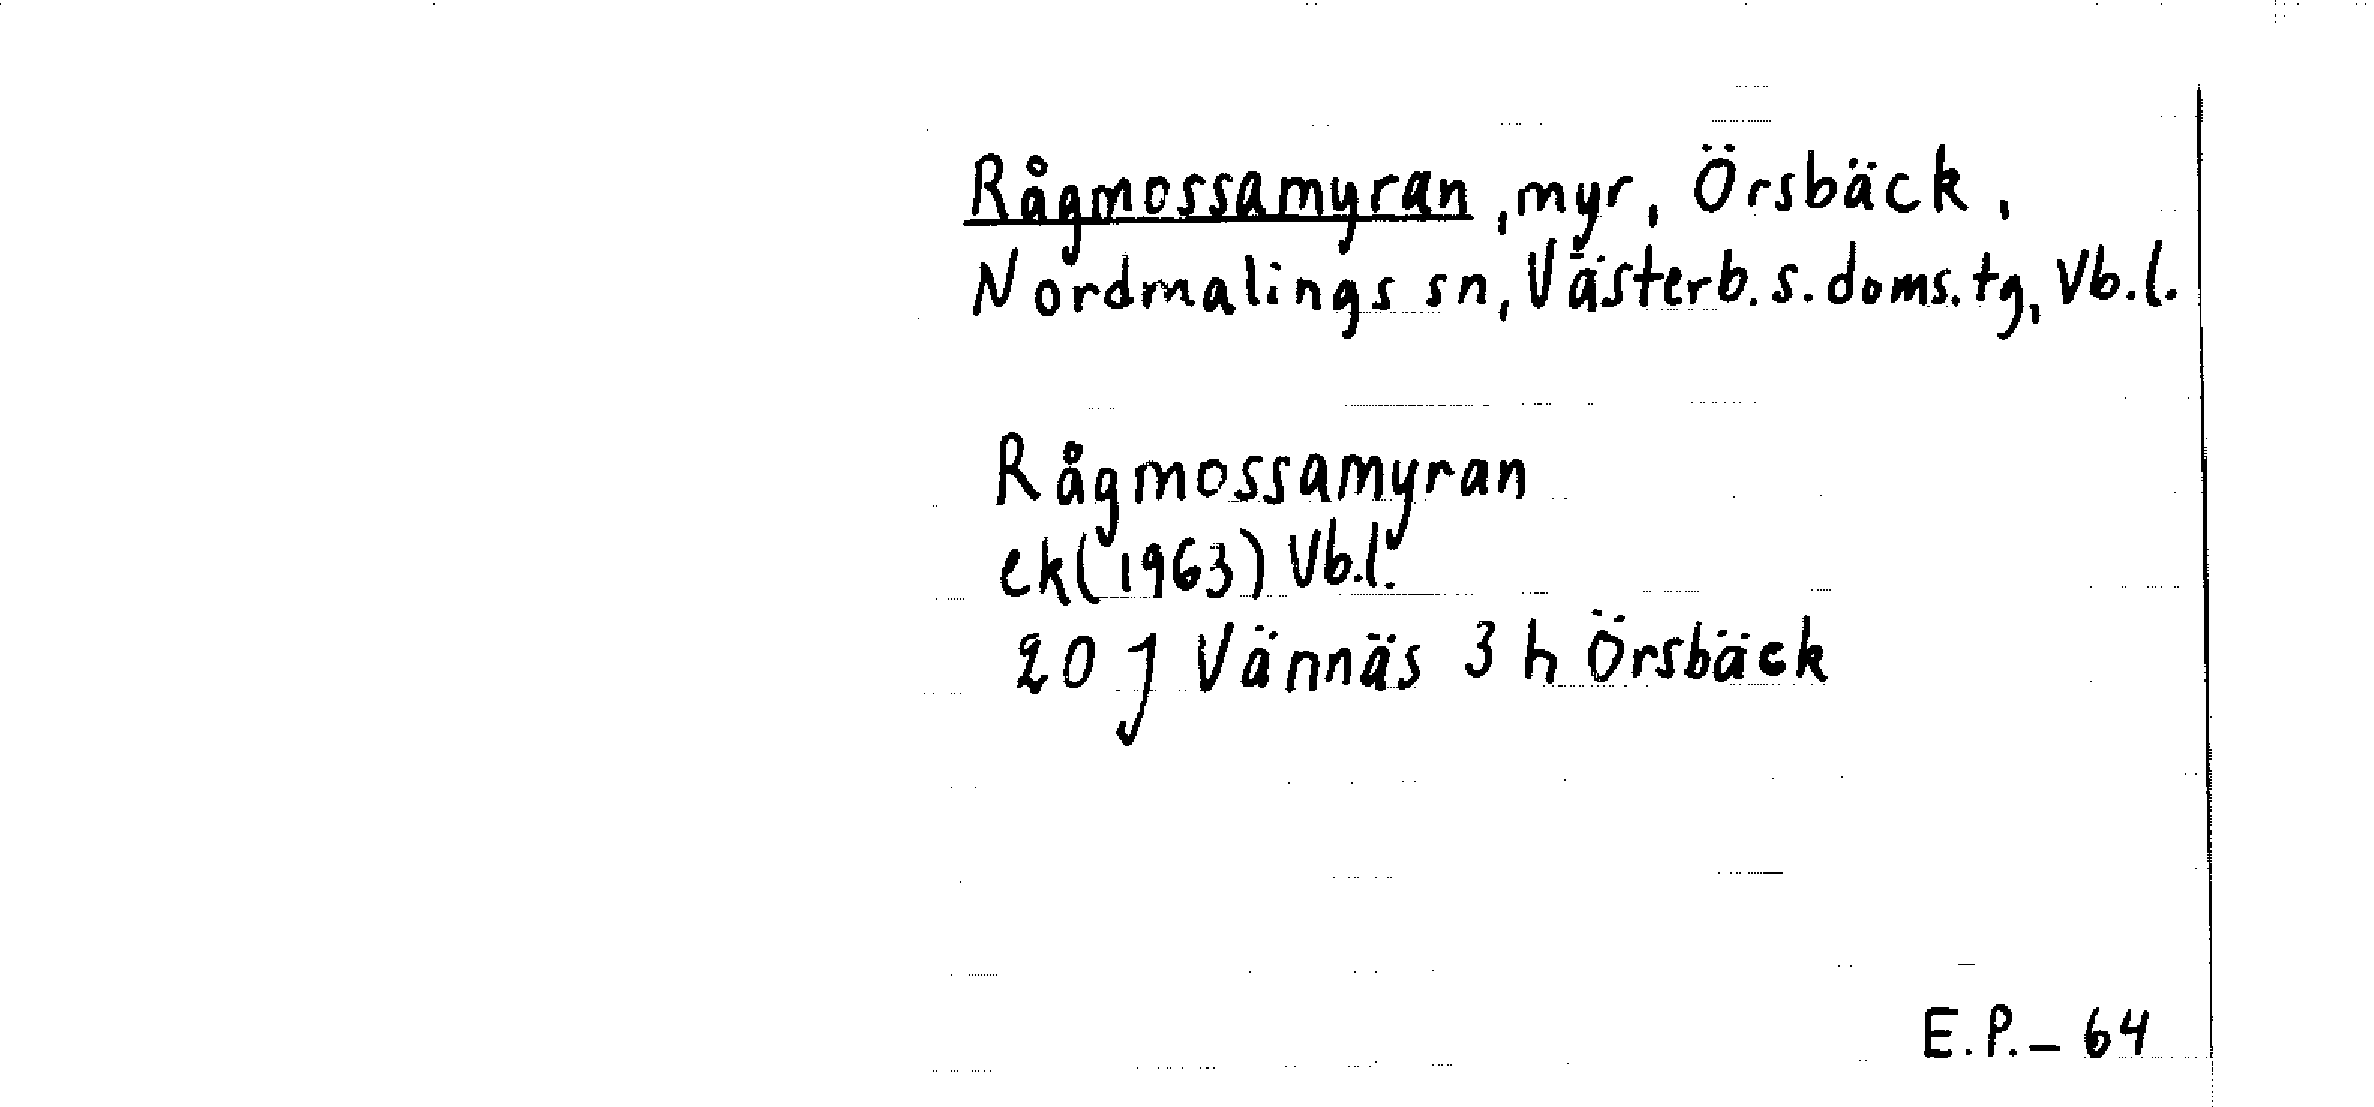 Rågmossamyran, myr, Örsbäck,
Nordmalings sn, Västerb. s. doms. tg, Vb. l.
Rågmossamyran
ek (1963) Vb. l.
20 J Vännäs 3 h Örsbäck
E. P. – 64